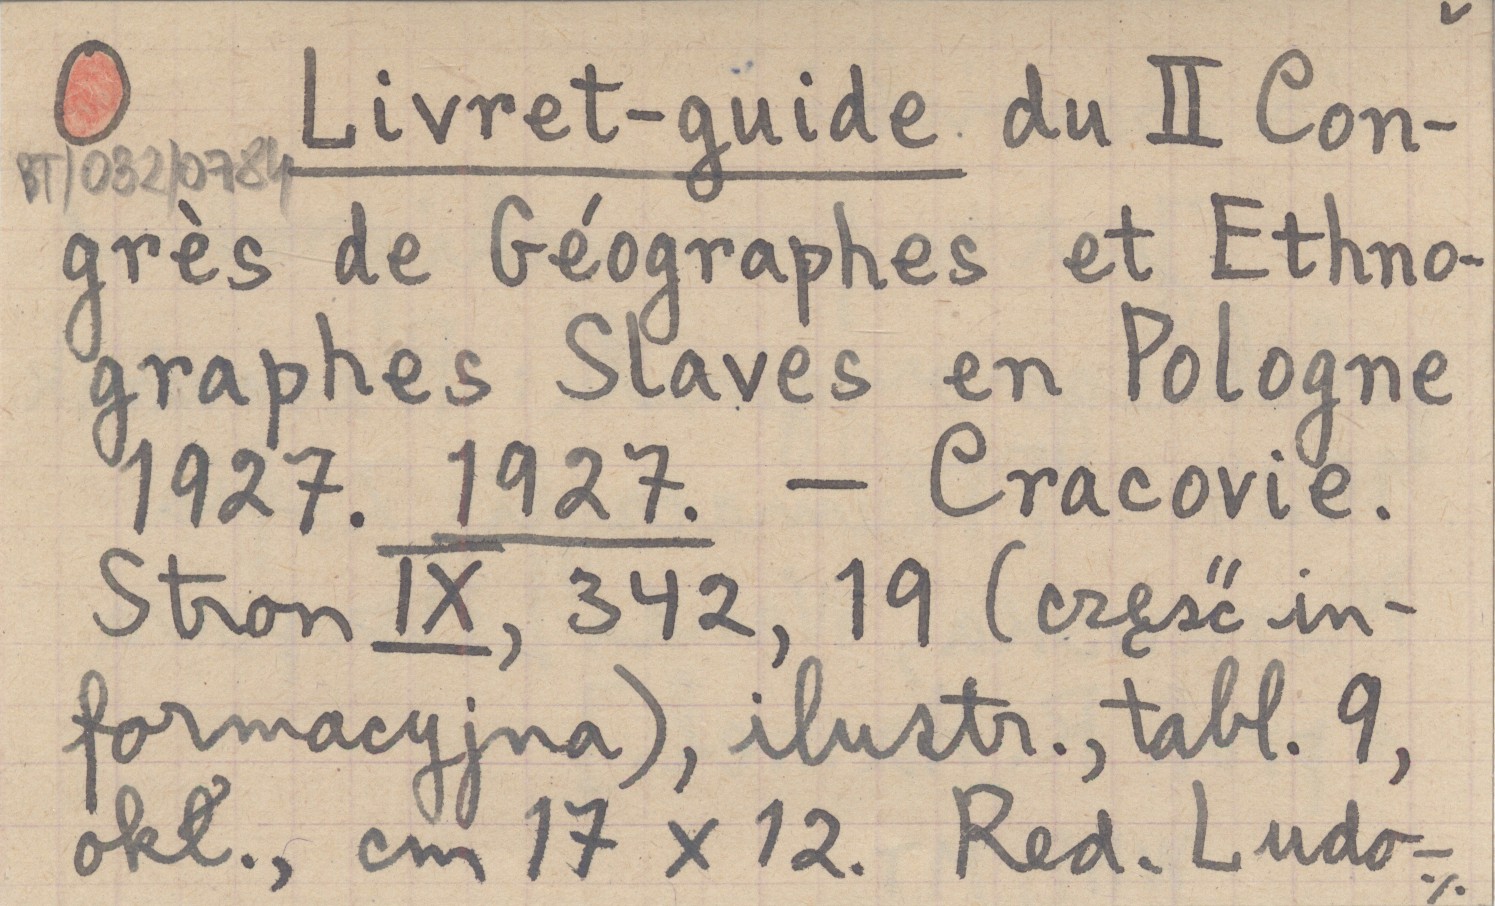 Livret-guide du II Con-
BT/032/0784
grès de Géographes et Ethno-
graphes Slaves en Pologne
1927. 1927. — Cracovie.
Stron IX, 342, 19 (część in-
formacyjna), ilustr., tabl. 9,
okł., cm 17 x 12. Red. Ludo-
./.